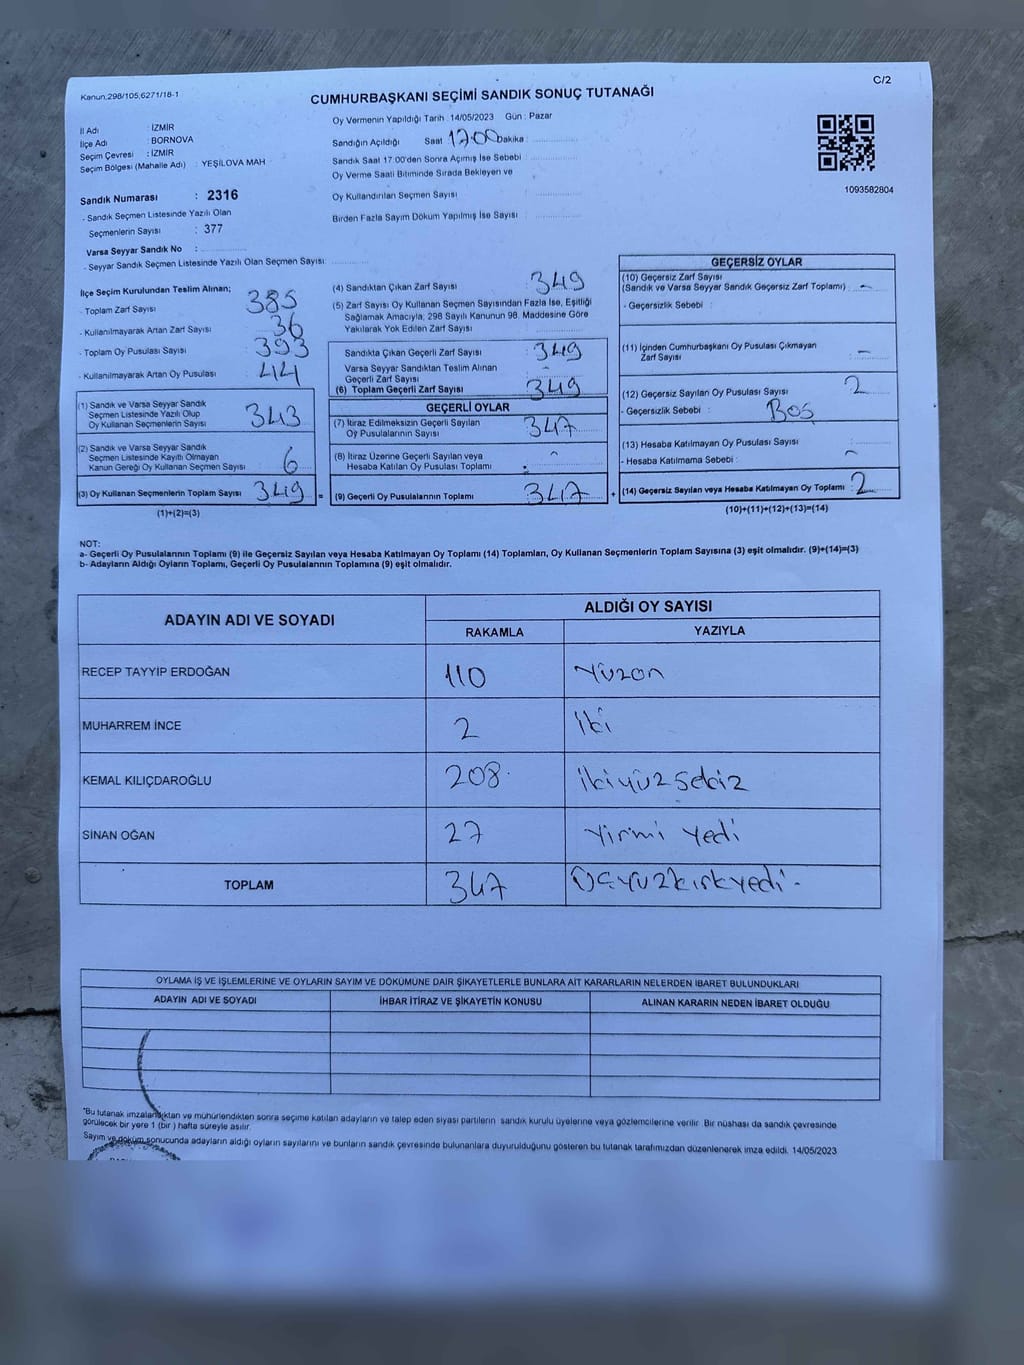 Kanun.298/105,6271/18-1
C/2
CUMHURBAŞKANI SEÇİMİ SANDIK SONUÇ TUTANAĞI
İl Adı : İZMİR
İlçe Adı : BORNOVA
Seçim Çevresi : İZMİR
Seçim Bölgesi (Mahalle Adı) : YEŞİLOVA MAH
Sandık Numarası : 2316
- Sandık Seçmen Listesinde Yazılı Olan
Seçmenlerin Sayısı : 377
Varsa Seyyar Sandık No :
- Seyyar Sandık Seçmen Listesinde Yazılı Olan Seçmen Sayısı:
Oy Vermenin Yapıldığı Tarih : 14/05/2023 Gün : Pazar
Sandığın Açıldığı Saat 17.00 Dakika :
Sandık Saat 17.00'den Sonra Açımış İse Sebebi
Oy Verme Saati Bitiminde Sırada Bekleyen ve
Oy Kullandırılan Seçmen Sayısı
Birden Fazla Sayım Döküm Yapılmış İse Sayısı :
1093582804
İlçe Seçim Kurulundan Teslim Alınan;
- Toplam Zarf Sayısı : 385
- Kullanılmayarak Artan Zarf Sayısı : 36
- Toplam Oy Pusulası Sayısı : 393
- Kullanılmayarak Artan Oy Pusulası : 44
(1) Sandık ve Varsa Seyyar Sandık
Seçmen Listesinde Yazılı Olup
Oy Kullanan Seçmenlerin Sayısı : 343
(2) Sandık ve Varsa Seyyar Sandık
Seçmen Listesinde Kayıtlı Olmayan
Kanun Gereği Oy Kullanan Seçmen Sayısı : 6
(3) Oy Kullanan Seçmenlerin Toplam Sayısı : 349 =
(1)+(2)=(3)
(4) Sandıktan Çıkan Zarf Sayısı : 349
(5) Zarf Sayısı Oy Kullanan Seçmen Sayısından Fazla İse, Eşitliği
Sağlamak Amacıyla; 298 Sayılı Kanunun 98. Maddesine Göre
Yakılarak Yok Edilen Zarf Sayısı :
Sandıkta Çıkan Geçerli Zarf Sayısı : 349
Varsa Seyyar Sandıktan Teslim Alınan
Geçerli Zarf Sayısı : -
(6) Toplam Geçerli Zarf Sayısı : 349
GEÇERLİ OYLAR
(7) İtiraz Edilmeksizin Geçerli Sayılan
Oy Pusulalarının Sayısı : 347
(8) İtiraz Üzerine Geçerli Sayılan veya
Hesaba Katılan Oy Pusulası Toplamı : -
(9) Geçerli Oy Pusulalarının Toplamı : 347 +
GEÇERSİZ OYLAR
(10) Geçersiz Zarf Sayısı
(Sandık ve Varsa Seyyar Sandık Geçersiz Zarf Toplamı) : -
- Geçersizlik Sebebi :
(11) İçinden Cumhurbaşkanı Oy Pusulası Çıkmayan
Zarf Sayısı : -
(12) Geçersiz Sayılan Oy Pusulası Sayısı : 2
- Geçersizlik Sebebi : Boş
(13) Hesaba Katılmayan Oy Pusulası Sayısı :
- Hesaba Katılmama Sebebi : -
(14) Geçersiz Sayılan veya Hesaba Katılmayan Oy Toplamı : 2
(10)+(11)+(12)+(13)=(14)
NOT:
a- Geçerli Oy Pusulalarının Toplamı (9) ile Geçersiz Sayılan veya Hesaba Katılmayan Oy Toplamı (14) Toplamları, Oy Kullanan Seçmenlerin Toplam Sayısına (3) eşit olmalıdır. (9)+(14)=(3)
b- Adayların Aldığı Oyların Toplamı, Geçerli Oy Pusulalarının Toplamına (9) eşit olmalıdır.
ADAYIN ADI VE SOYADI
ALDIĞI OY SAYISI
RAKAMLA YAZIYLA
RECEP TAYYİP ERDOĞAN 110 Yüzon
MUHARREM İNCE 2 İki
KEMAL KILIÇDAROĞLU 208 ikiyüzsekiz
SİNAN OĞAN 27 Yirmi yedi
TOPLAM 347 Üçyüzkırkyedi -
OYLAMA İŞ VE İŞLEMLERİNE VE OYLARIN SAYIM VE DÖKÜMÜNE DAİR ŞİKAYETLERLE BUNLARA AİT KARARLARIN NELERDEN İBARET BULUNDUKLARI
ADAYIN ADI VE SOYADI İHBAR İTİRAZ VE ŞİKAYETİN KONUSU ALINAN KARARIN NEDEN İBARET OLDUĞU
"Bu tutanak imzalandıktan ve mühürlendikten sonra seçime katılan adayların ve talep eden siyasi partilerin sandık kurulu üyelerine veya gözlemcilerine verilir. Bir nüshası da sandık çevresinde
görülecek bir yere 1 (bir ) hafta süreyle asılır.
Sayım ve döküm sonucunda adayların aldığı oyların sayılarını ve bunların sandık çevresinde bulunanlara duyurulduğunu gösteren bu tutanak tarafımızdan düzenlenerek imza edildi. 14/05/2023